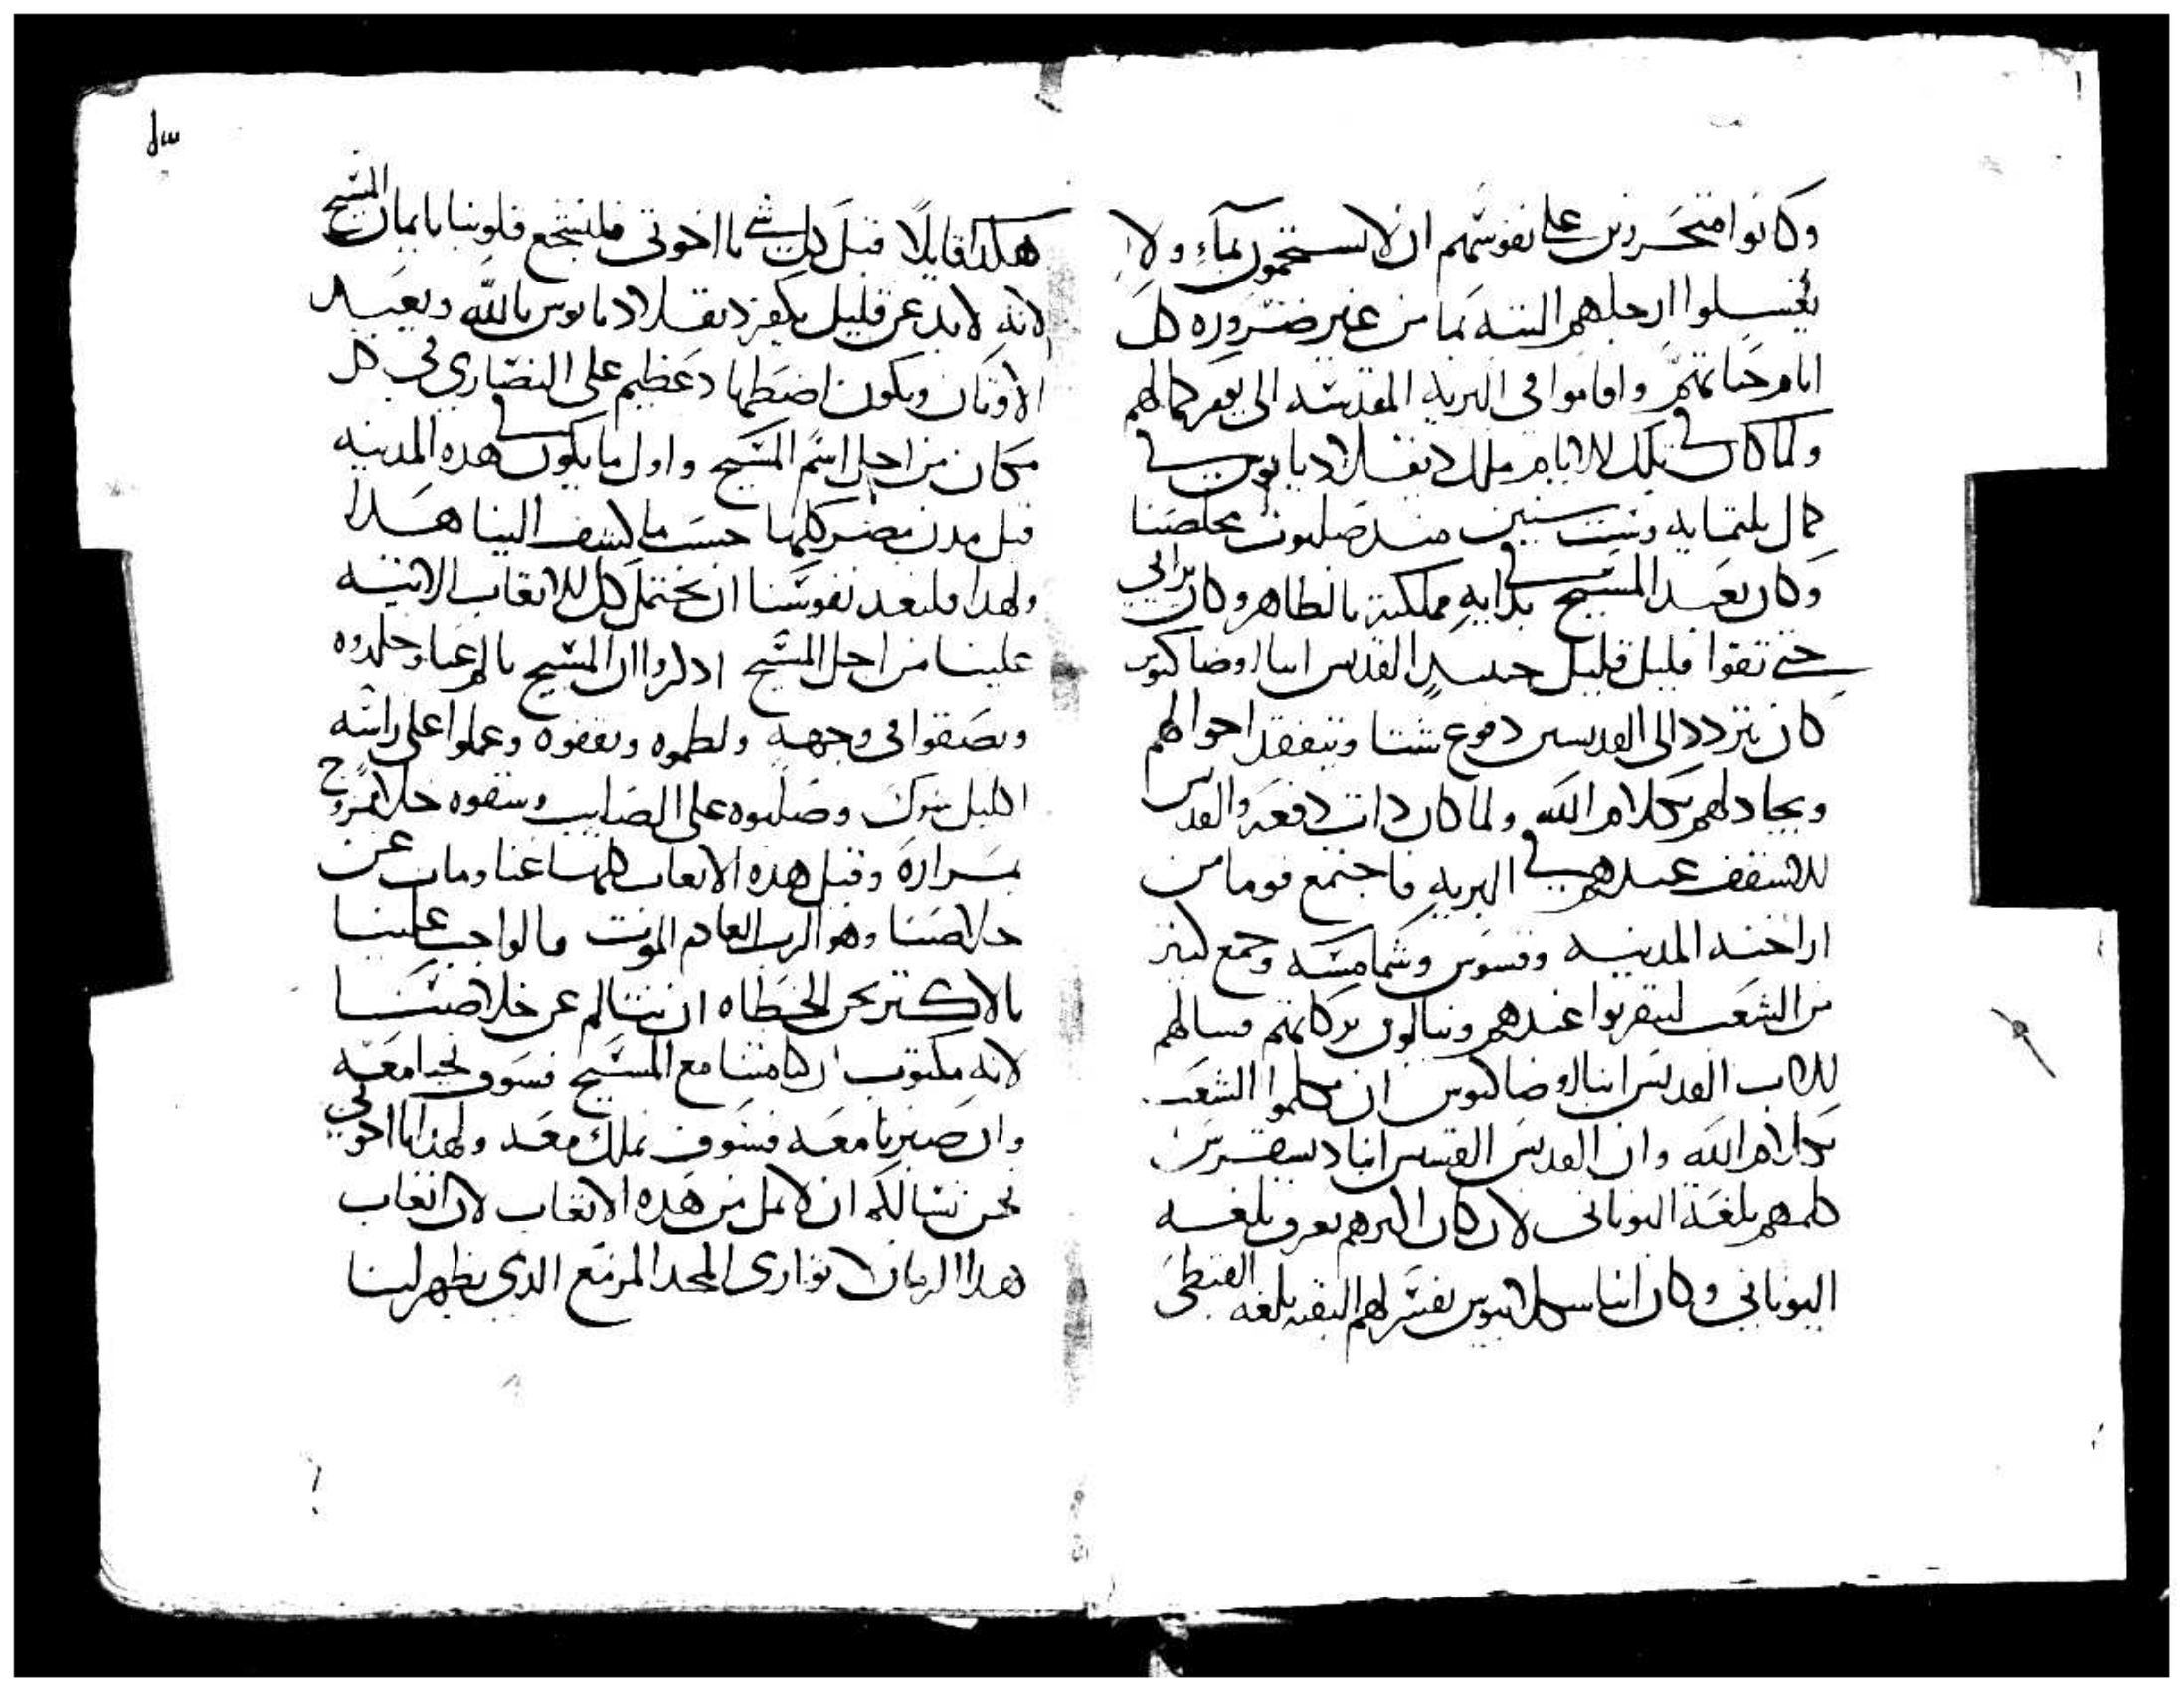 وكانوا متحررين على نفوسهم ان لا يستحمون بماء ولا
يغسلوا ارجلهم البته بما من غير ضروره كل
ايام حياتهم واقاموا في البريه المقدسه الى يوم كمالهم
ولما كان في تلك الايام ملك دقلاديانوس في
كمال تلتمايه وست سنين منذ صلبوت مخلصنا
وكان يعبد المسيح في بدايه مملكته بالظاهر وكان يرابي
حتى تقوا قليل قليل حينيدٍ القديس انبا اوضاكيوس
كان يتردد الى القديسين دفوع شتا ويتفقد احوالهم
ويجادلهم بكلام الله ولما كان دات دفعه والقديس
الاسقف عندهم في البريه فاجتمع قوما من
اراخنه المدينه وقسوس وشمامسه وجمع كتير
من الشعب ليتقربوا عندهم وينالون بركاتهم فسالهم
الاب القديس انبا اوضاكيوس ان يكلموا الشعب
بكلام الله وان القديس القسيس انبا ديسقرس
كلمهم بلغة اليوناني لان كان اكثرهم يعرف بلغه
اليوناني وكان انبا سكلابيوس يفسر لهم البقيه بلغه القبطي
سل
هكدا قايلًا قبل كل شي يا اخوتي فلنشجع قلوبنا بايمان المسيح
لانه لابد عن قليل يكفر دقلاديانوس بالله ويعبد
الاوتان ويكون اضطهاد عظيم على النصارى في كل
مكان من اجل اسم المسيح واول ما يكون في هده المدينه
قبل مدن مصر كلها حسب ما كشف الينا هدا
ولهدا فلنعد نفوسنا ان نحتمل كل الاتعاب الاتيه
علينا من اجل المسيح ادكروا ان المسيح تالم عنا وجلدوه
وبصقوا في وجهه ولطموه وتقفوه وعملوا على راسه
اكليل شوك وصلبوه على الصليب وسقوه خلا ممزوج
بمرارة وقبل هده الاتعاب كلها عنا ومات عن
خلاصنا وهو الرب العادم الموت فالواجب علينا
بالاكتر نحن الخطاه ان نتالم عن خلاصنا
لانه مكتوب ان كا متنا مع المسيح فسوف نحيا معه
وان صبرنا معه فسوف نملك معه ولهدا يا اخوتي
نحن نسالكم ان لا تمل من هده الاتعاب لان اتعاب
هدا الزمان لا توازى المجد المزمع الدي يظهر لينا